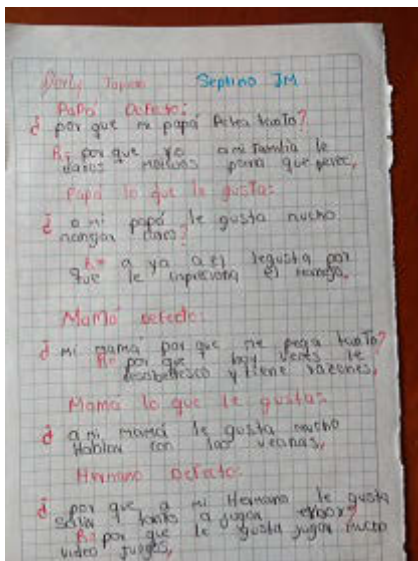 Septimo JM
Papá Defecto:
¿ por que mi papá Pelea tanto?
R= por que yo a mi familia le
damos motivos para que pelee,
Papá lo que le gusta:
¿ a mi papá le gusta mucho
manejar
R= a ya a el legusta por
que le impresiona el manejo,
Mamá defecto:
¿ mi mamá por que me pega tanto?
R= por que hay veces le
desobedesco y tiene razones,
Mama lo que le gusta:
¿ a mi mamá le gusta mucho
Hablar con las vecinas,
Hermano Defeto:
¿ por que a mi Hermano le gusta
salir tanto a jugar
R= por que le gusta jugar mucho
video juegos,